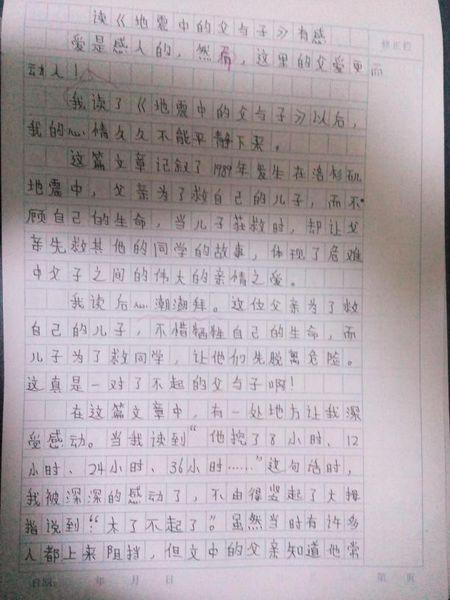 读《地震中的父与子》有感
修正栏
爱是感人的，然而，这里的父爱更而
动人！
我读了《地震中的父与子》以后，
我的心情久久不能平静下来。
这篇文章记叙了1989年发生在洛杉矶
地震中，父亲为了救自己的儿子，而不
顾自己的生命，当儿子获救时，却让父
亲先救其他的同学的故事，体现了危难
中父子之间的伟大的亲情之爱。
我读后心潮潮拜。这位父亲为了救
自己的儿子，不惜牺牲自己的生命，而
儿子为了救同学，让他们先脱离危险。
这真是一对了不起的父与子啊！
在这篇文章中，有一处地方让我深
受感动。当我读到“他挖了8小时、12
小时、24小时、36小时……”这句话时，
我被深深的感动了，不由得竖起了大拇
指说到“太了不起了”。虽然当时有许多
人都上来阻挡，但文中的父亲知道他常
年 月 日
第 页